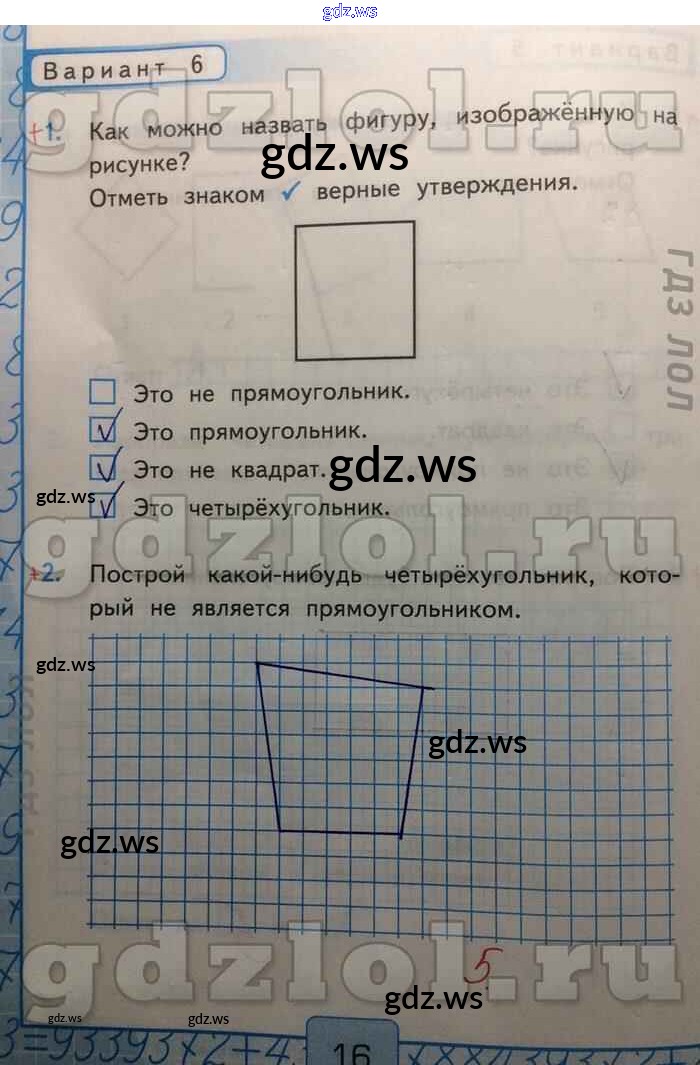 gdz.ws
Вариант 6
gdzlol.ru
+1. Как можно назвать фигуру, изображённую на
рисунке?
gdz.ws
Отметь знаком ✓ верные утверждения.
гдз лол
Это не прямоугольник.
V Это прямоугольник.
V Это не квадрат.
gdz.ws
gdz.ws
V Это четырёхугольник.
gdzlol.ru
+2. Построй какой-нибудь четырёхугольник, кото-
рый не является прямоугольником.
gdz.ws
гдз лол
gdz.ws
gdz.ws
gdzlol.ru
5
gdz.ws
gdz.ws
gdz.ws
3=93393×2+4
16